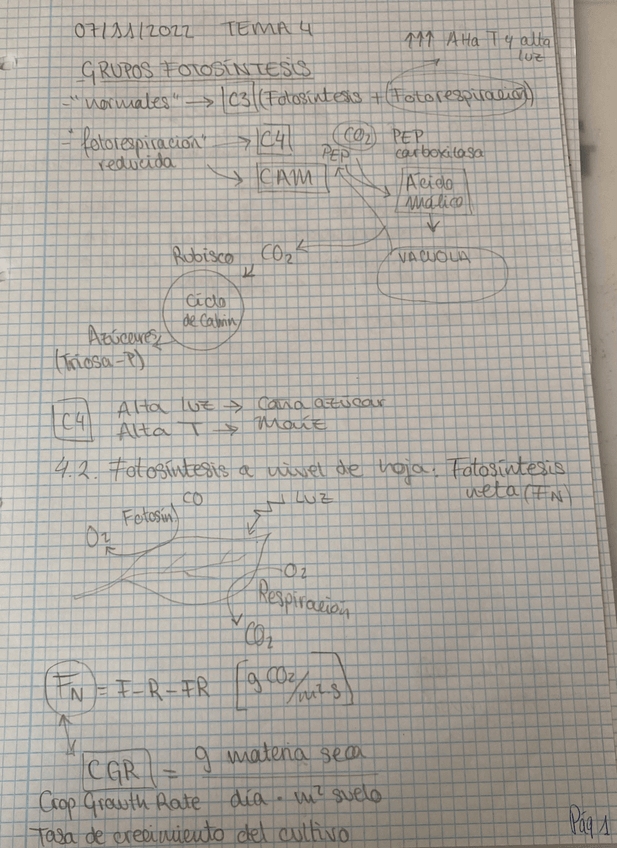 07/11/2022 TEMA 4
↑↑↑ Alta T y alta luz
GRUPOS FOTOSÍNTESIS
- "normales" → C3 (Fotosíntesis + Fotorespiración)
- "fotorespiración reducida" → C4
→ CAM
CO2 PEP
PEP carboxilasa
Ácido
málico
VACUOLA
Rubisco CO2
Ciclo
de Calvin
Azúcares
(Triosa-P)
C4 Alta luz → Caña azúcar
Alta T → Maíz
4.2. Fotosíntesis a nivel de hoja: Fotosíntesis
neta (FN)
CO LUZ
Fotosín
O2
O2
Respiración
CO2
FN = F - R - FR [g CO2/m2·s]
CGR = g materia seca
Crop Growth Rate día · m2 suelo
Tasa de crecimiento del cultivo
Pág 1